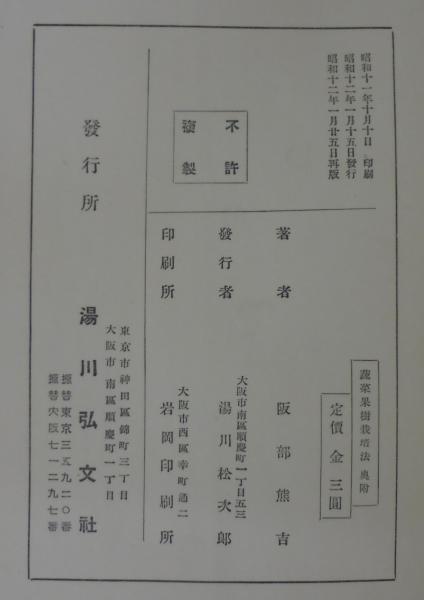 昭和十一年十月十日 印刷
昭和十二年一月十五日發行
昭和十二年一月廿五日再版
不許
複製
蔬菜果樹栽培法 奥附
定價金三圓
著者 阪部熊吉
發行者 大阪市南區順慶町一丁目五三
湯川松次郎
印刷所 大阪市西區幸町通二
岩岡印刷所
發行所
東京市神田區錦町三丁目
大阪市南區順慶町一丁目
湯川弘文社
振替東京三五九二〇番
振替大阪七一二九七番